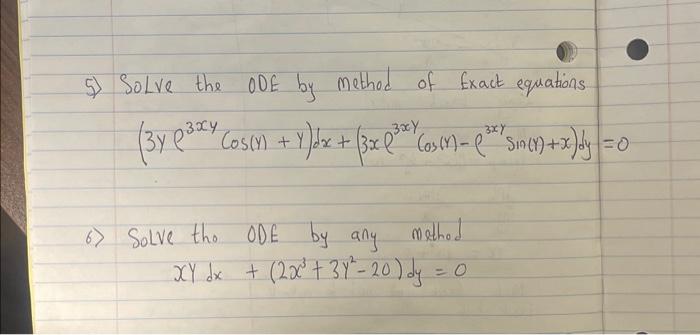 5) Solve the ODE by method of Exact equations
(3y e^{3xy} Cos(y) + y)dx + (3x e^{3xy} Cos(y) - e^{3xy} Sin(y) + x)dy = 0
6) Solve the ODE by any method
xy dx + (2x³ + 3y² - 20) dy = 0